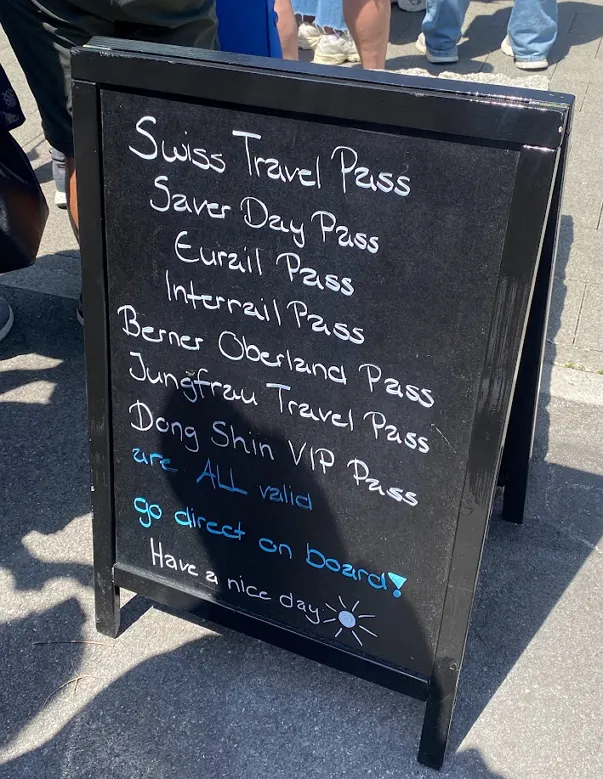 Swiss Travel Pass
Saver Day Pass
Eurail Pass
Interrail Pass
Berner Oberland Pass
Jungfrau Travel Pass
Dong Shin VIP Pass
are ALL valid
go direct on board!
Have a nice day